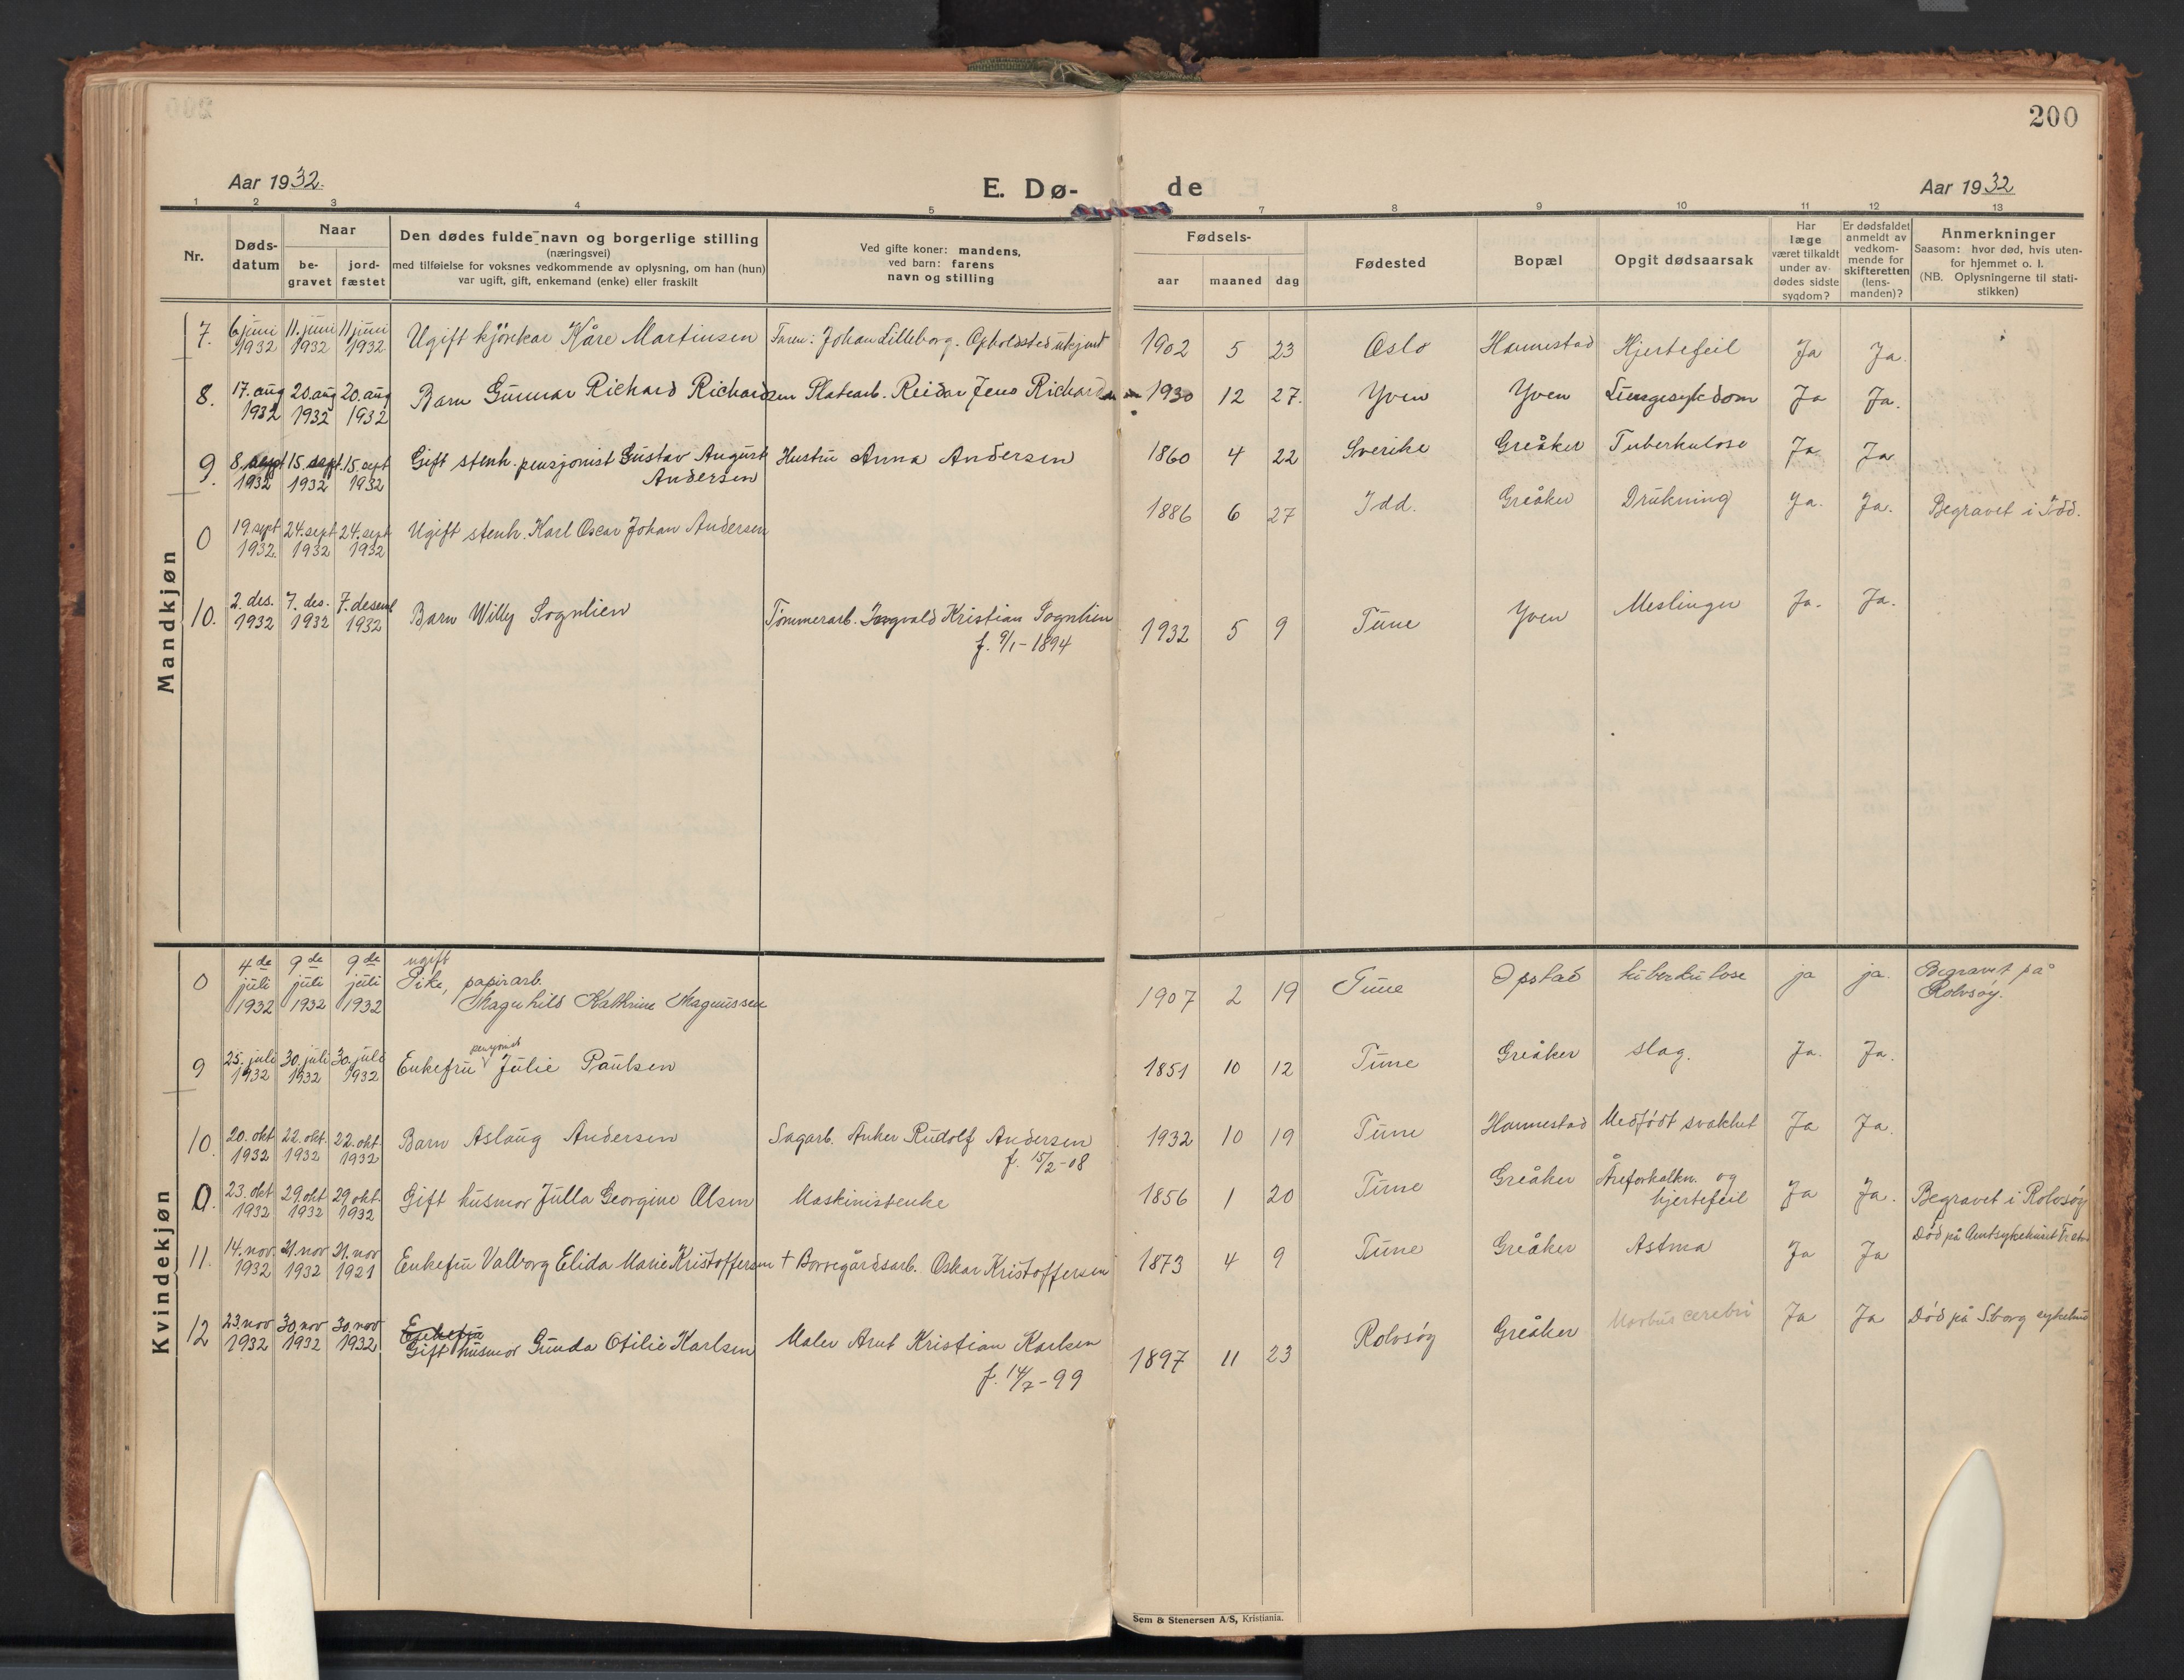 200
Aar 1932.
E. Dø-
de
Aar 1932
1 2 3 4 5 7 8 9 10 11 12 13
Nr.
Døds-
datum
Naar
be-
gravet
jord-
fæstet
Den dødes fulde navn og borgerlige stilling
(næringsvei)
med tilføielse for voksnes vedkommende av oplysning, om han (hun)
var ugift, gift, enkemand (enke) eller fraskilt
Ved gifte koner: mandens,
ved barn: farens
navn og stilling
Fødsels-
aar maaned dag
Fødested
Bopæl
Opgit dødsaarsak
Har
læge
været tilkaldt
under av-
dødes sidste
sygdom?
Er dødsfaldet
anmeldt av
vedkom-
mende for
skifteretten
(lens-
manden)?
Anmerkninger
Saasom: hvor død, hvis uten-
for hjemmet o. l.
(NB. Oplysningerne til stati-
stikken)
Mandkjøn
7. 6 juni 11. juni 11 juni Ugift kjörekar Kåre Martinsen Faren: Johan Lilleborg. Opholdssted ukjent 1902 5 23 Oslo Hannestad Hjertefeil Ja Ja.
1932 1932 1932
8. 17. aug 20. aug 20. aug Barn Gunnar Richard Richardsen Platearb. Reidar Jens Richardsen 1930 12 27. Yven Yven Lungesykdom Ja Ja.
1932 1932 1932
9. 8 sept 15. sept. 15. sept Gift stenh. pensjonist Gustav August Hustru Anna Andersen 1860 4 22 Sverike Greåker Tuberkulose Ja Ja
1932 1932 1932 Andersen
0 19. sept 24. sept 24. sept Ugift stenh. Karl Oscar Johan Andersen 1886 6 27 Idd. Greåker Drukning Ja. Ja. Begravet i Idd.
1932. 1932 1932
10. 2. des. 7. des. 7. desemb Barn Willy Sognlien Tömmerarb. Ingvald Kristian Sognlien 1932 5 9 Tune Yven Meslinger Ja. Ja.
1932 1932 1932 f. 9/1-1894
Kvindekjøn
0 4de 9de 9de ugift
juli juli juli Pike, papirarb. 1907 2 19 Tune Opstad tuberkulose ja ja. Begravet på
1932 1932 1932 Magnhild Kathrine Magnussen Rolvsøy.
pensjonist
9 25. juli 30. juli 30. juli Enkefru Julie Paulsen 1851 10 12 Tune Greåker slag. Ja. Ja.
1932 1932 1932
10. 20. okt 22. okt. 22. okt. Barn Aslaug Andersen Sagarb. Anker Rudolf Andersen 1932 10 19 Tune Hannestad Medfödt svakhet Ja Ja.
1932 1932 1932 f. 15/2-08
0. 23. okt 29. okt. 29 okt. Gift husmor Julla Georgine Olsen Maskinistenke 1856 1 20 Tune Greåker Åreforkalkn. og Ja Ja. Begravet i Rolvsöy
1932 1932 1932 hjertefeil
11. 14. nov. 21. nov 21. nov Enkefru Valborg Elida Marie Kristoffersen + Borregårdsarb. Oskar Kristoffersen 1873 4 9 Tune Greåker Astma Ja Ja Död på Amtsykehuset
1932 1932 1921
12 23. nov 30. nov 30. nov Enkefru
1932 1932 1932 Gift husmor Gunda Otilie Karlsen Maler Arnt Kristian Karlsen 1897 11 23 Rolvsöy Greåker Morbus cerebri Ja Ja Död på S.borg sykehus
f. 14/7-99
Sem & Stenersen A/S, Kristiania.